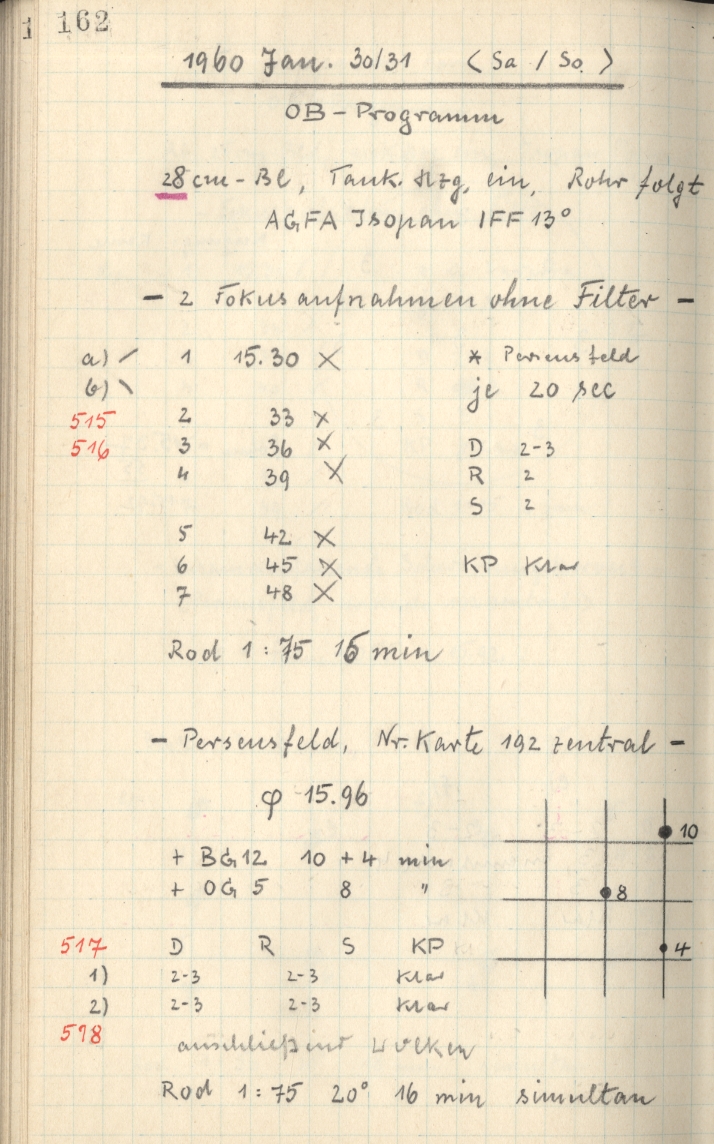 1 162
1960 Jan. 30/31 < Sa / So >
OB-Programm
28cm-Bl, Tauk. Hzg, ein, Rohr folgt
AGFA Isopan IFF 13°
- 2 Fokusaufnahmen ohne Filter -
a) / 1 15.30 × * Perseusfeld
b) \ je 20 sec
515 2 33 ×
516 3 36 × D 2-3
4 39 × R 2
S 2
5 42 ×
6 45 × KP klar
7 48 ×
Rod 1:75 16 min
- Perseusfeld, Nr. Karte 192 zentral -
φ 15.96
10
+ BG 12 10 + 4 min
+ OG 5 8 " 8
517 D R S KP 4
1) 2-3 2-3 klar
2) 2-3 2-3 klar
518 anschließend Wolken
Rod 1:75 20° 16 min simultan